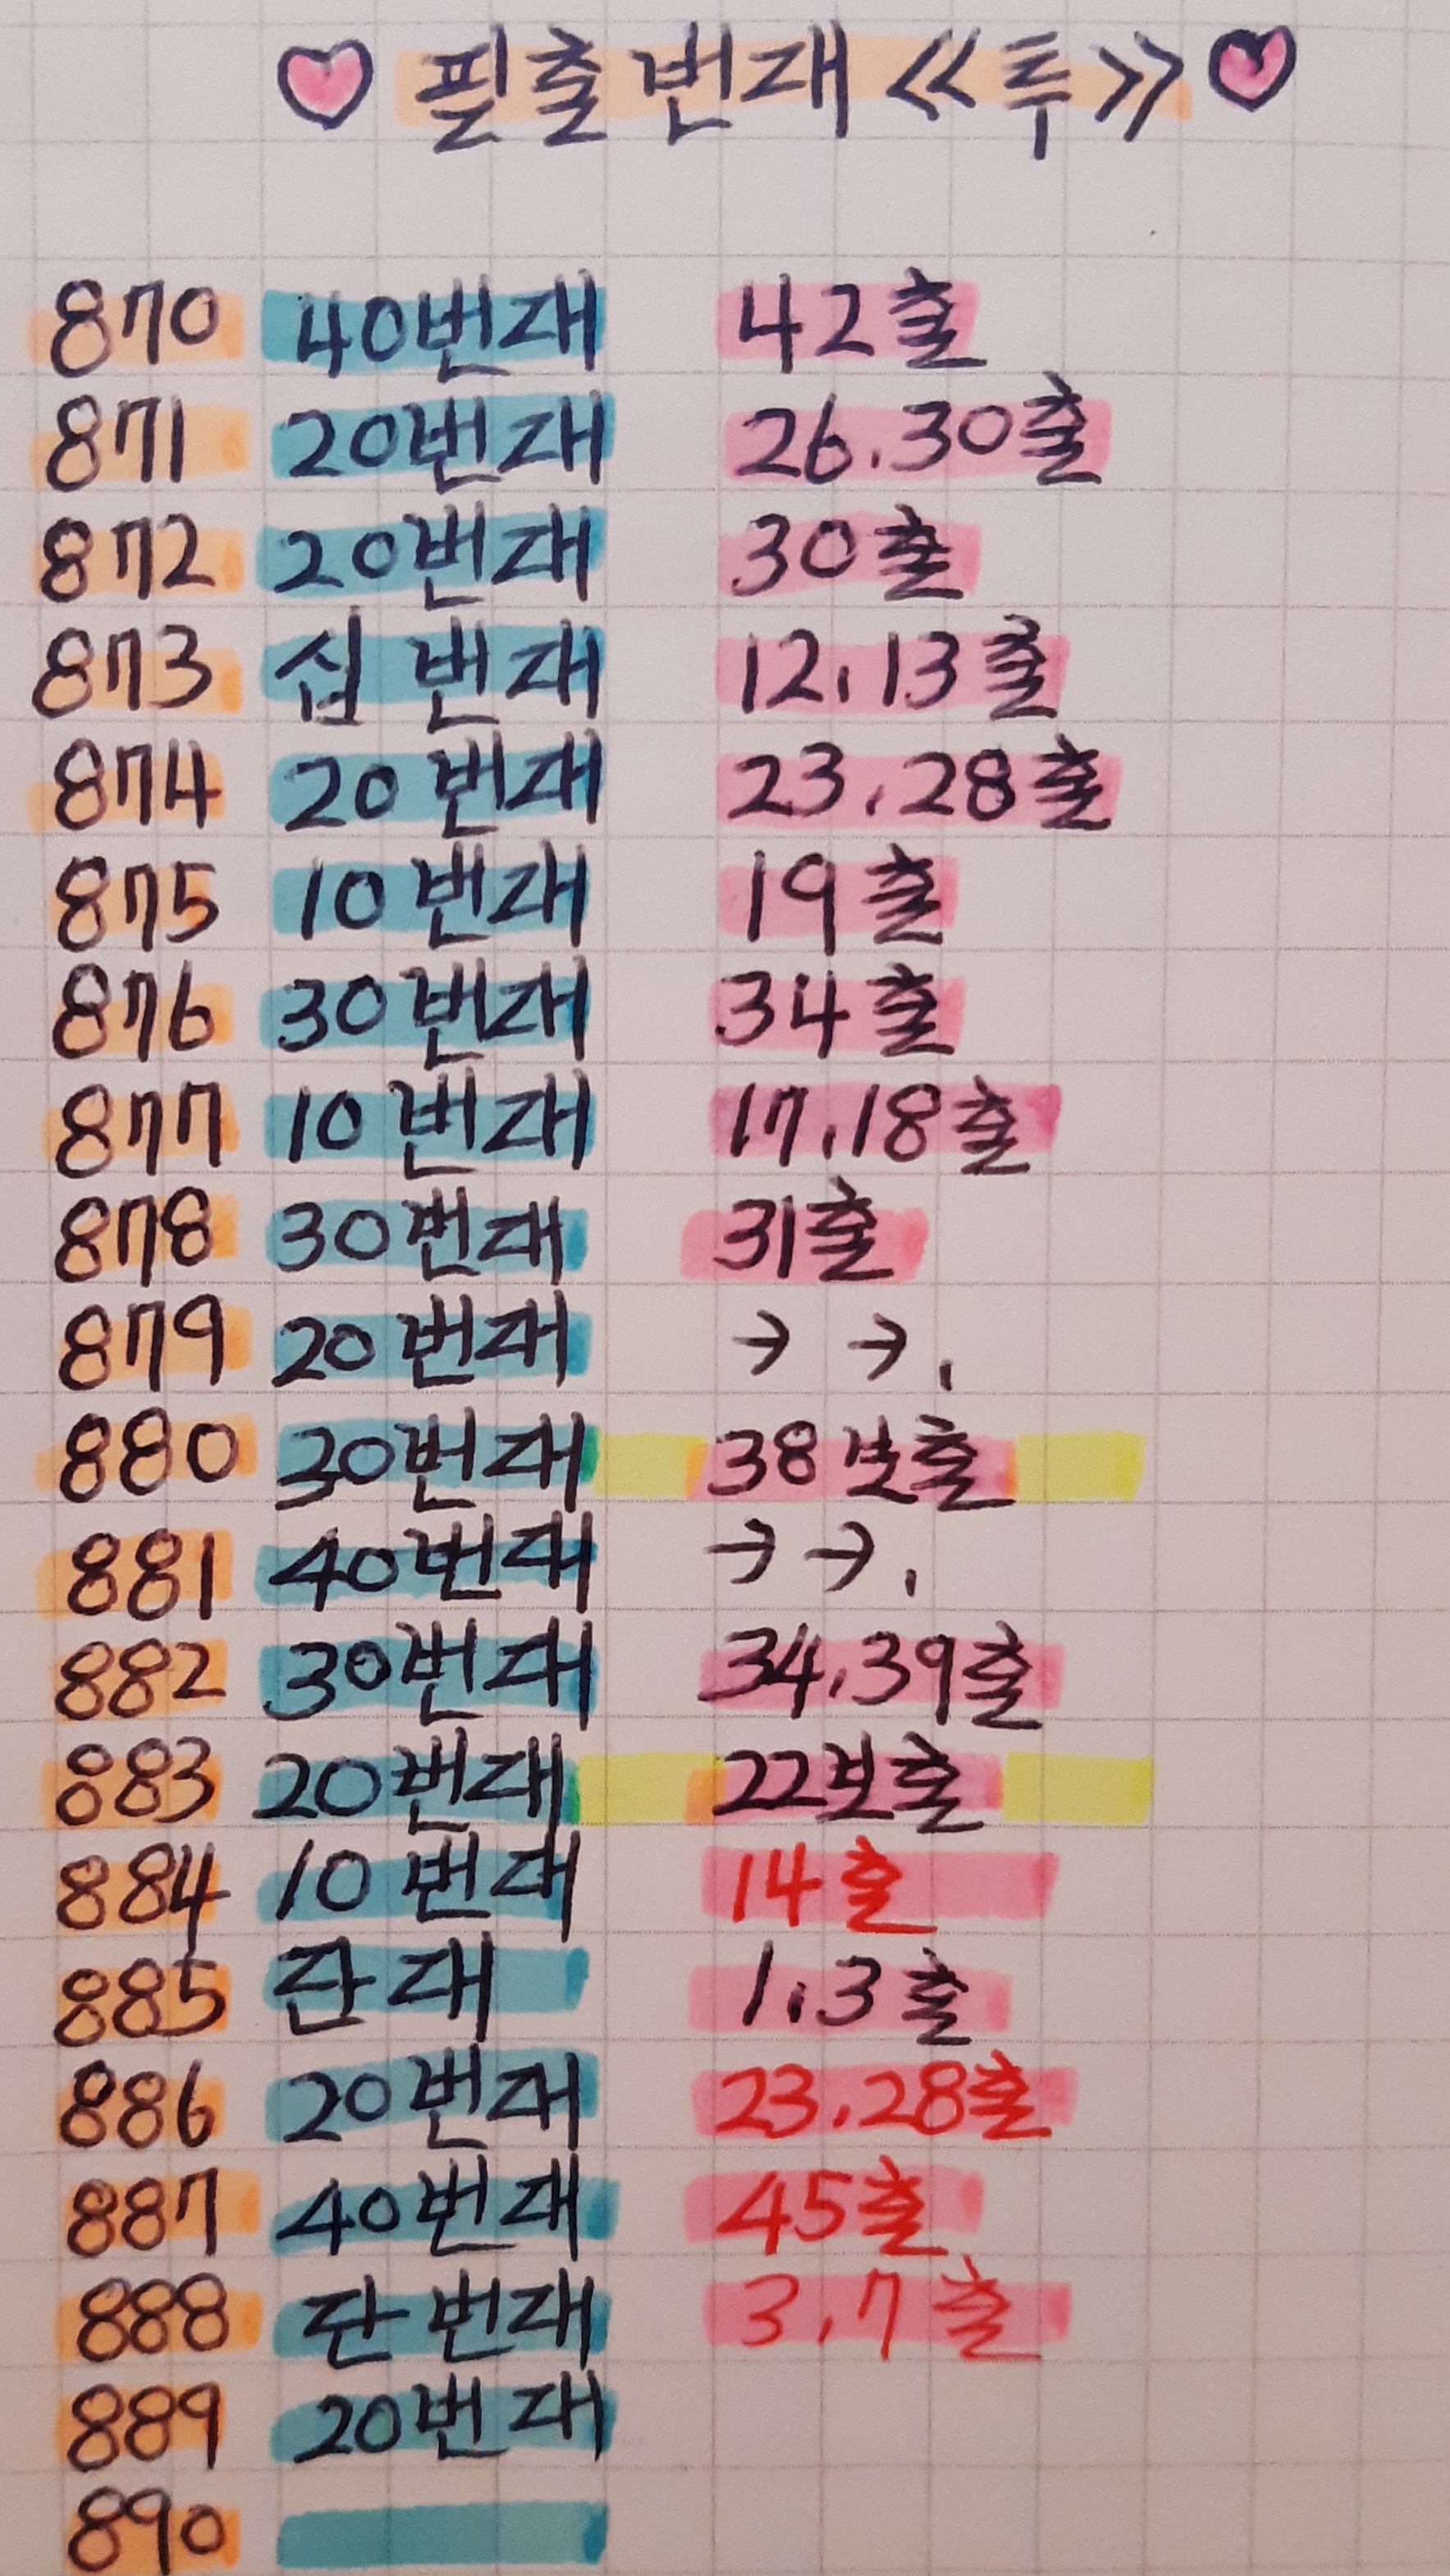 ♡ 필출번대 《투》 ♡
870 40번대 42출
871 20번대 26.30출
872 20번대 30출
873 십번대 12.13출
874 20번대 23.28출
875 10번대 19출
876 30번대 34출
877 10번대 17.18출
878 30번대 31출
879 20번대 → →.
880 30번대 38보출
881 40번대 → →.
882 30번대 34.39출
883 20번대 22보출
884 10번대 14출
885 단대 1.3출
886 20번대 23.28출
887 40번대 45출
888 단번대 3.7출
889 20번대
890